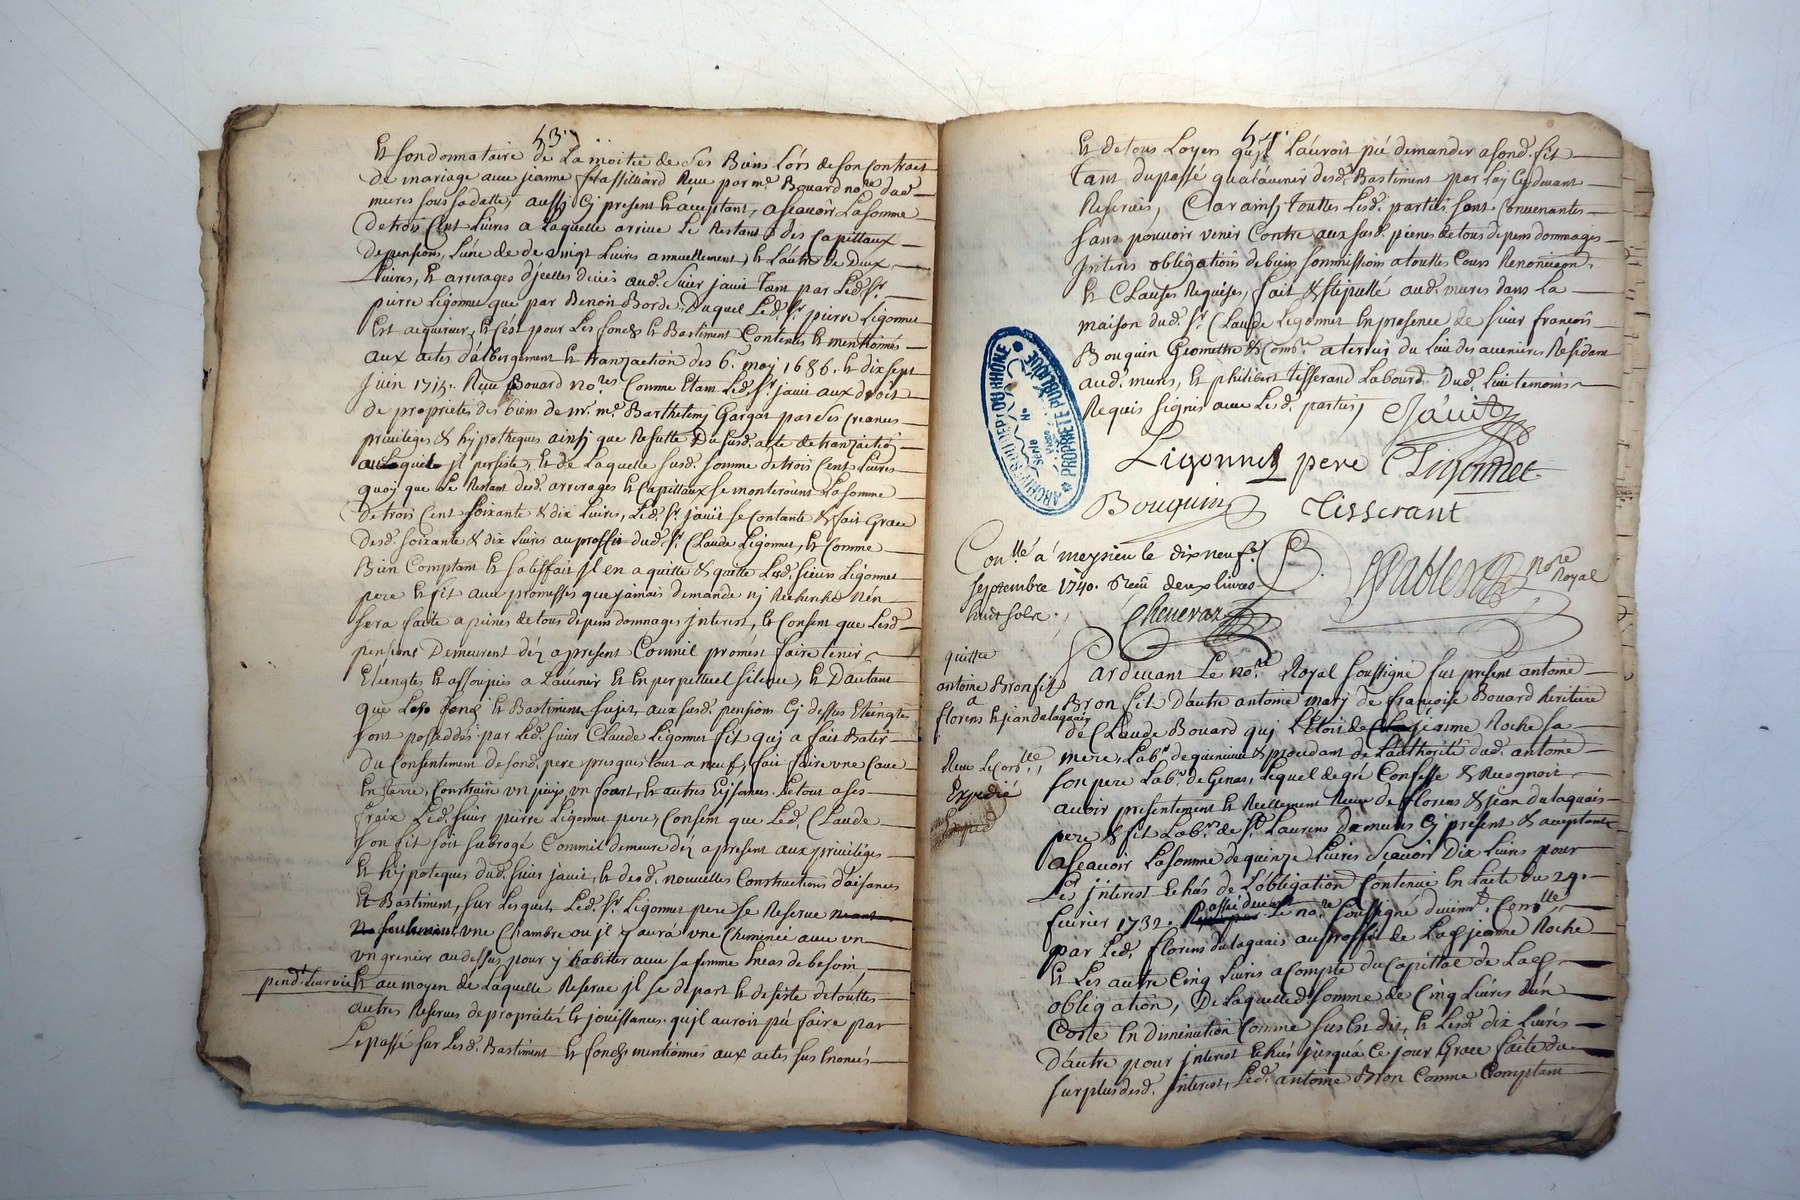 53.
Et son donnataire de La moitié de Ses Biens Lórs de son Contract
De mariage avec jeanne Reçu par m.e Bouard no.re dud.
mures sous sa datte, aussi Cy present et acceptant, ascavoir La somme
de trois Cent Livres a Laquelle arrive Le Restant des Capittaux
De pensions, L'une de de vingt Livres annuellement, et L'autre de Deux
Livres, et arrerages d'jcelles deües aud. Sieur javit Tant par Led. Sr.
pierre Ligonnet que par Benoit Borde, Duquel Led. Sr. pierre Ligonnet
Est acquereur, et C'ést pour Les fonds et Bastiment Contenus et mentionnés
aux actes d'albergement et tranzaction des 6.e may 1686. et dix sept
Juin 1715. Reçu Bouard no.res Comme Etant Led. Sr. javit aux droits
de proprietés des biens de mr. me. Barthelemy Gargat par des Creances
privileges & hypotheques ainsy que Resulte Du susd. acte de tranzaction
auLaquel jl persiste, Et de Laquelle susd. somme de trois Cent Livres
quoy que Le Restant desd. arrerages et Capittaux se monteroient La somme
de trois Cent soixante & dix Livres, Led. Sr. javit se Contante & fait Grace
desd. soixante & dix Livres au proffit dud. Sr. Claude Ligonnet, Et Comme
Bien Comptant et satisffait jl en a quitté & quitte Lesd. sieurs Ligonnet
pere et fit avec promesses que jamais demande nj Recherche n'en
sera faite a peines de tous depens dommages interest, et Consent que Lesd.
pensions Demeurent déz a present Comm'il promést faire tenir
Eteingtes et assoupies a L'avenir Et En perpetuel silence, et D'autant
que Les fonds et Bastiment sujets aux susd. pensions Cy dessus Eteingtes
sont possedés par Led. sieur Claude Ligonnet fit quj a fait Batir
du Consentement de sond. pere presque tout a neuf, fait faire vne Cave
En terre, Construire vn puys vn fourt, et autres Le tout a ses
fraix Led. sieur pierre Ligonnet pere, Consent que Led. Claude
son fit soit subrogé Comm'il demeure déz a present aux privileges
Et hypoteques dud. sieur javit, et desd. nouvelles Constructions d'aisances
Et Bastiment, sur Lesquels Led. Sr. Ligonnet pere se Reserve
vne Chambre ou jl y aura vne Cheminée avec vn
vn grenier audessus pour y habitter avec sa femme en cas de besoin,
pend.t Leur vie Et au moyen de Laquelle Reserve jl se depart et desiste de touttes
autres Reserves de proprieté et jouissances qu'jl auroit pû faire par
Le passé sur Lesd. Bastiment Et fonds mentionnés aux actes sus Enoncés
54.
Et de tous Loyers qu'jl Lauroit pû demander a sond. fit
Tant du passé qu'a L'avenir desd. Bastiment par Luy Cydevant
Reservés, Car ainsy touttes Lesd. parties sont Convenantes
sans pouvoir venir Contre aux susd. peines de tous depens dommages
Interes obligations de biens sommissions a touttes Cours Renonciaon.
et Clauses Requises, fait & stipullé aud. mures dans La
maison dud. Sr. Claude Ligonnet En presence de sieur françois
Bouquin Geomettre & Com.re a terrier du Lieu des avenieres Residant
aud. mures, et philibert tesserand Labour.r Dud. Lieu temoins
Requis signés avec Lesd. parties, Javit
Ligonnet pere C Ligonnet
Bouquin Tisserant
ARCHIVES DU DEPT DU RHÔNE
Série
N°
PROPRIÉTÉ PUBLIQUE
Con.llé a meysieu le dix neuf.e
Septembre 1740. Receû deux livres
huit sols.
Chenevaz
no.re
Royal
quitte
antoine Bron fit
a
florens & jean dulaquais
Reçu Le con.lle
Expedié
Pardevant Le no.re Royal soussigné fut present antoine
Bron fit D'autre antoine marj de françoise Bouard heritiere
de Claude Bouard quj L'étoit de jeanne Roche sa
mere, Lab.r de & procedant de L'authorité dud. antoine
son pere Lab.r de Genas, Lequel de gré Confesse & Recognoit
avoir presentement et Reellement Reçu de florens & jean dulaquais
pere & fit Lab.rs de St. Laurens de mures Cy present & acceptant
ascavoir La somme de quinze Livres scavoir Dix Livres pour
Les jnterest Echûs de L'obligation Contenue En L'acte du 29.
fevrier 1732. passé devant Le no.re soussigné düem.t Con.llé
par Led. florens dulaquais au proffit de Lad. jeanne Roche
et Les autre Cinq Livres a Compte du Capittal de Lad.
obligation, De Laquelle d. somme de Cinq Livres d'un
Côtté En diminution Comme sus Est dit, et Lesd. dix Livres
D'autre pour jnterest Echûs jusqu'a Ce jour Grace faite du
surplus desd. jnterest, Led. antoine Bron Comme Comptant